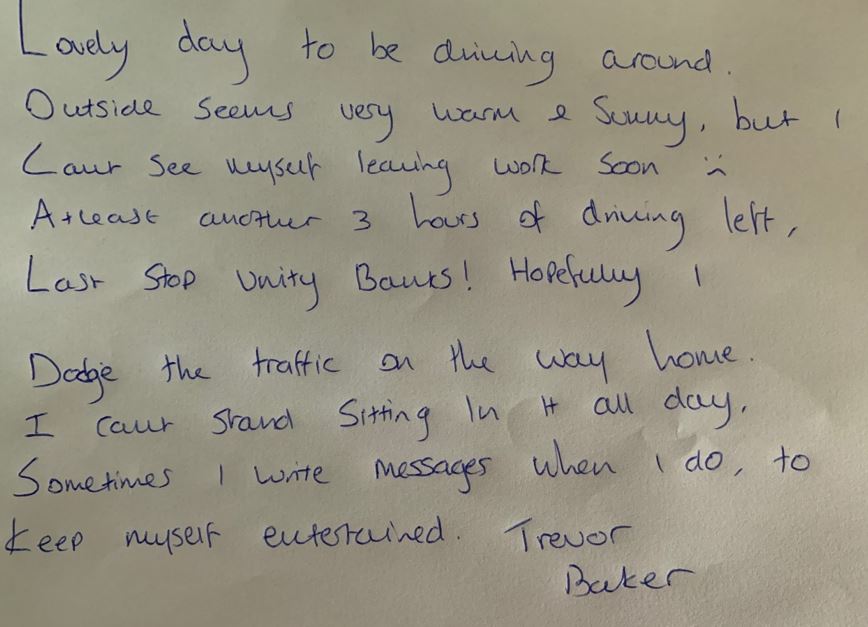 Lovely day to be driving around.
Outside seems very warm & Sunny, but I
Cant see myself leaving work soon :(
Atleast another 3 hours of driving left,
Last Stop Unity Banks! Hopefully I
Dodge the traffic on the way home.
I cant stand Sitting In It all day,
Sometimes I write messages when I do, to
keep myself entertained. Trevor
Baker